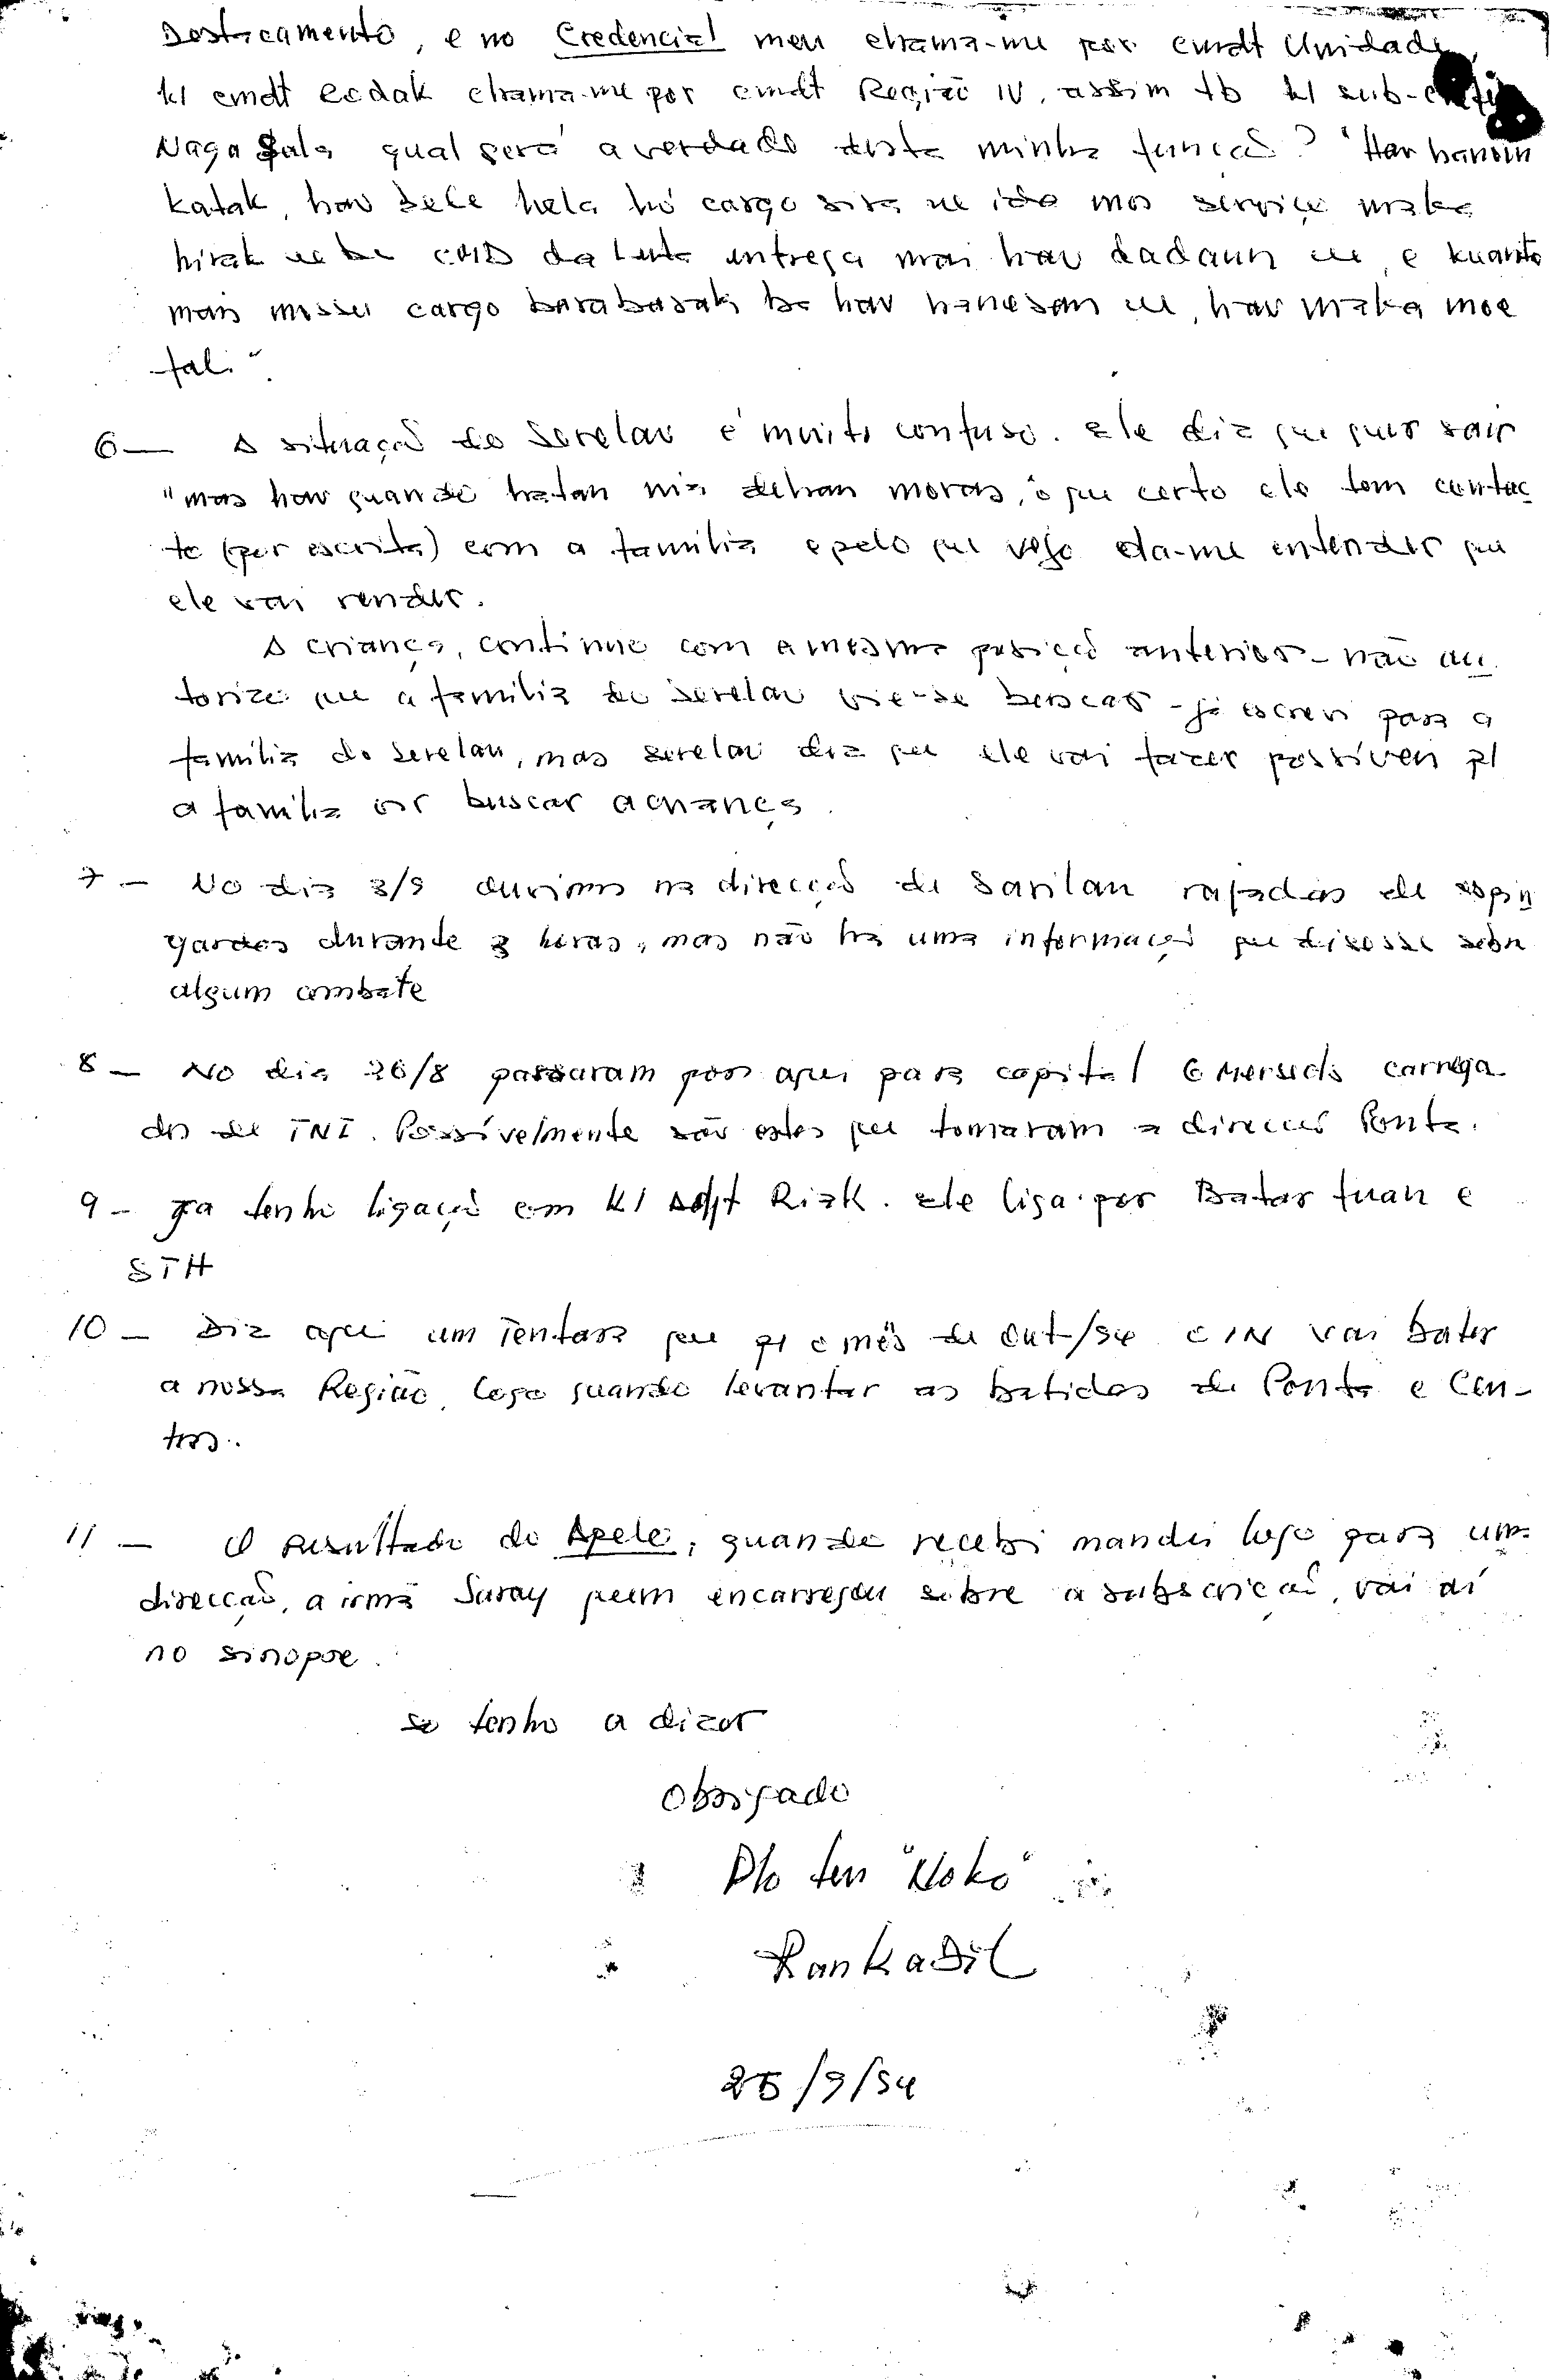 Destacamento, e no Credencial meu chama-me por cmdt Unidade,
kl cmdt Eodak chama-me por cmdt Região IV, assim tb kl sub-chefe
Naga Sala qual será a verdade desta minha função? "Hau hanoin
katak, hau sele hela ho cargo sira ne ida mos serviçe maka
hirak nebe CMD da Luta entrega mai hau dadaun ne, e kuanto
mais missu cargo barabarak ba hau hanesan ne, hau maka moe
fali".
6 — A situação do Serelau é muito confuso. Ele diz que quer sair
"mas hau quando hatan nia dehan moras, o que certo ele tem contac
to (por escrita) com a familia e pelo que vejo da-me entender que
ele vai render.
A criança, continue com a mesma posição anterior - não au
torizei que a familia do Serelau vie-se buscar - já escrevi para a
familia do Serelau, mas Serelau diz que ele vai fazer possíveu pl
a familia vir buscar a criança.
7 — No dia 3/9 ouvimos na direcção de Sarilau rajadas de espin
gardas durante 3 horas, mas não ha uma informação que disesse sobre
algum combate
8 — No dia 26/8 passaram por aqui para capital 6 Mersedes carrega
dos de TNI. Possívelmente são estes que tomaram a direcção Ponta.
9 — Ja tenho ligação com kl Adjt Riak. Ele liga por Batar tuan e
STH
10 — Diz aqui um Tentara que pl o mês de Out/94 o IN vai bater
a nossa Região, logo quando levantar as batidas de Ponta e Cen-
tro..
11 — O resultado do Apelo, quando recebi mandei logo para uma
direcção, a irmã Suray quem encarregou sobre a subscrição, vai aí
no sinopse.
so tenho a dizer
Obrigado
Plo ten "Noko"
Rankadil
25/9/94